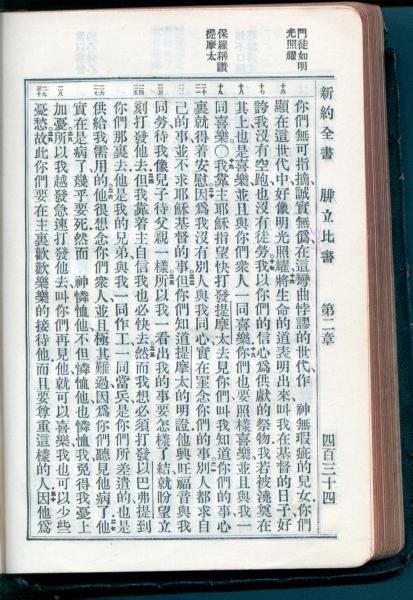 新約全書 腓立比書 第二章 四百三十四
門徒如明
光照耀
保羅稱讚
提摩太
你們無可指摘、誠實無僞、在這彎曲悖謬的世代、作 神無瑕疵的兒女、你們
顯在這世代中、好像明光照耀、將生命的道表明出來、叫我在基督的日子、好
誇我沒有空跑、也沒有徒勞、我以你們的信心爲供獻的祭物、我若被澆奠在
其上、也是喜樂、並且與你們衆人一同喜樂、你們也要照樣喜樂、並且與我一
同喜樂。〇我靠主耶穌指望快打發提摩太去見你們、叫我知道你們的事、心
裏就得着安慰、因爲我沒有別人與我同心、實在罣念你們的事、別人都求自
己的事、並不求耶穌基督的事、但你們知道提摩太的明證、他興旺福音、與我
同勞、待我像兒子待父親一樣、所以我一看出我的事要怎樣了結、就盼望立
刻打發他去、但我靠着主自信我也必快去、然而我想必須打發以巴弗提到
你們那裏去、他是我的兄弟、與我一同作工、一同當兵、是你們所差遣的、也是
供給我需用的、他很想念你們衆人、並且極其難過、因爲你們聽見他病了、他
實在是病了、幾乎要死、然而 神憐恤他、不但憐恤他、也憐恤我、免得我憂上
加憂、所以我越發急速打發他去、叫你們再見他、就可以喜樂、我也可以少些
憂愁、故此你們要在主裏歡歡樂樂的接待他、而且要尊重這樣的人、因他爲